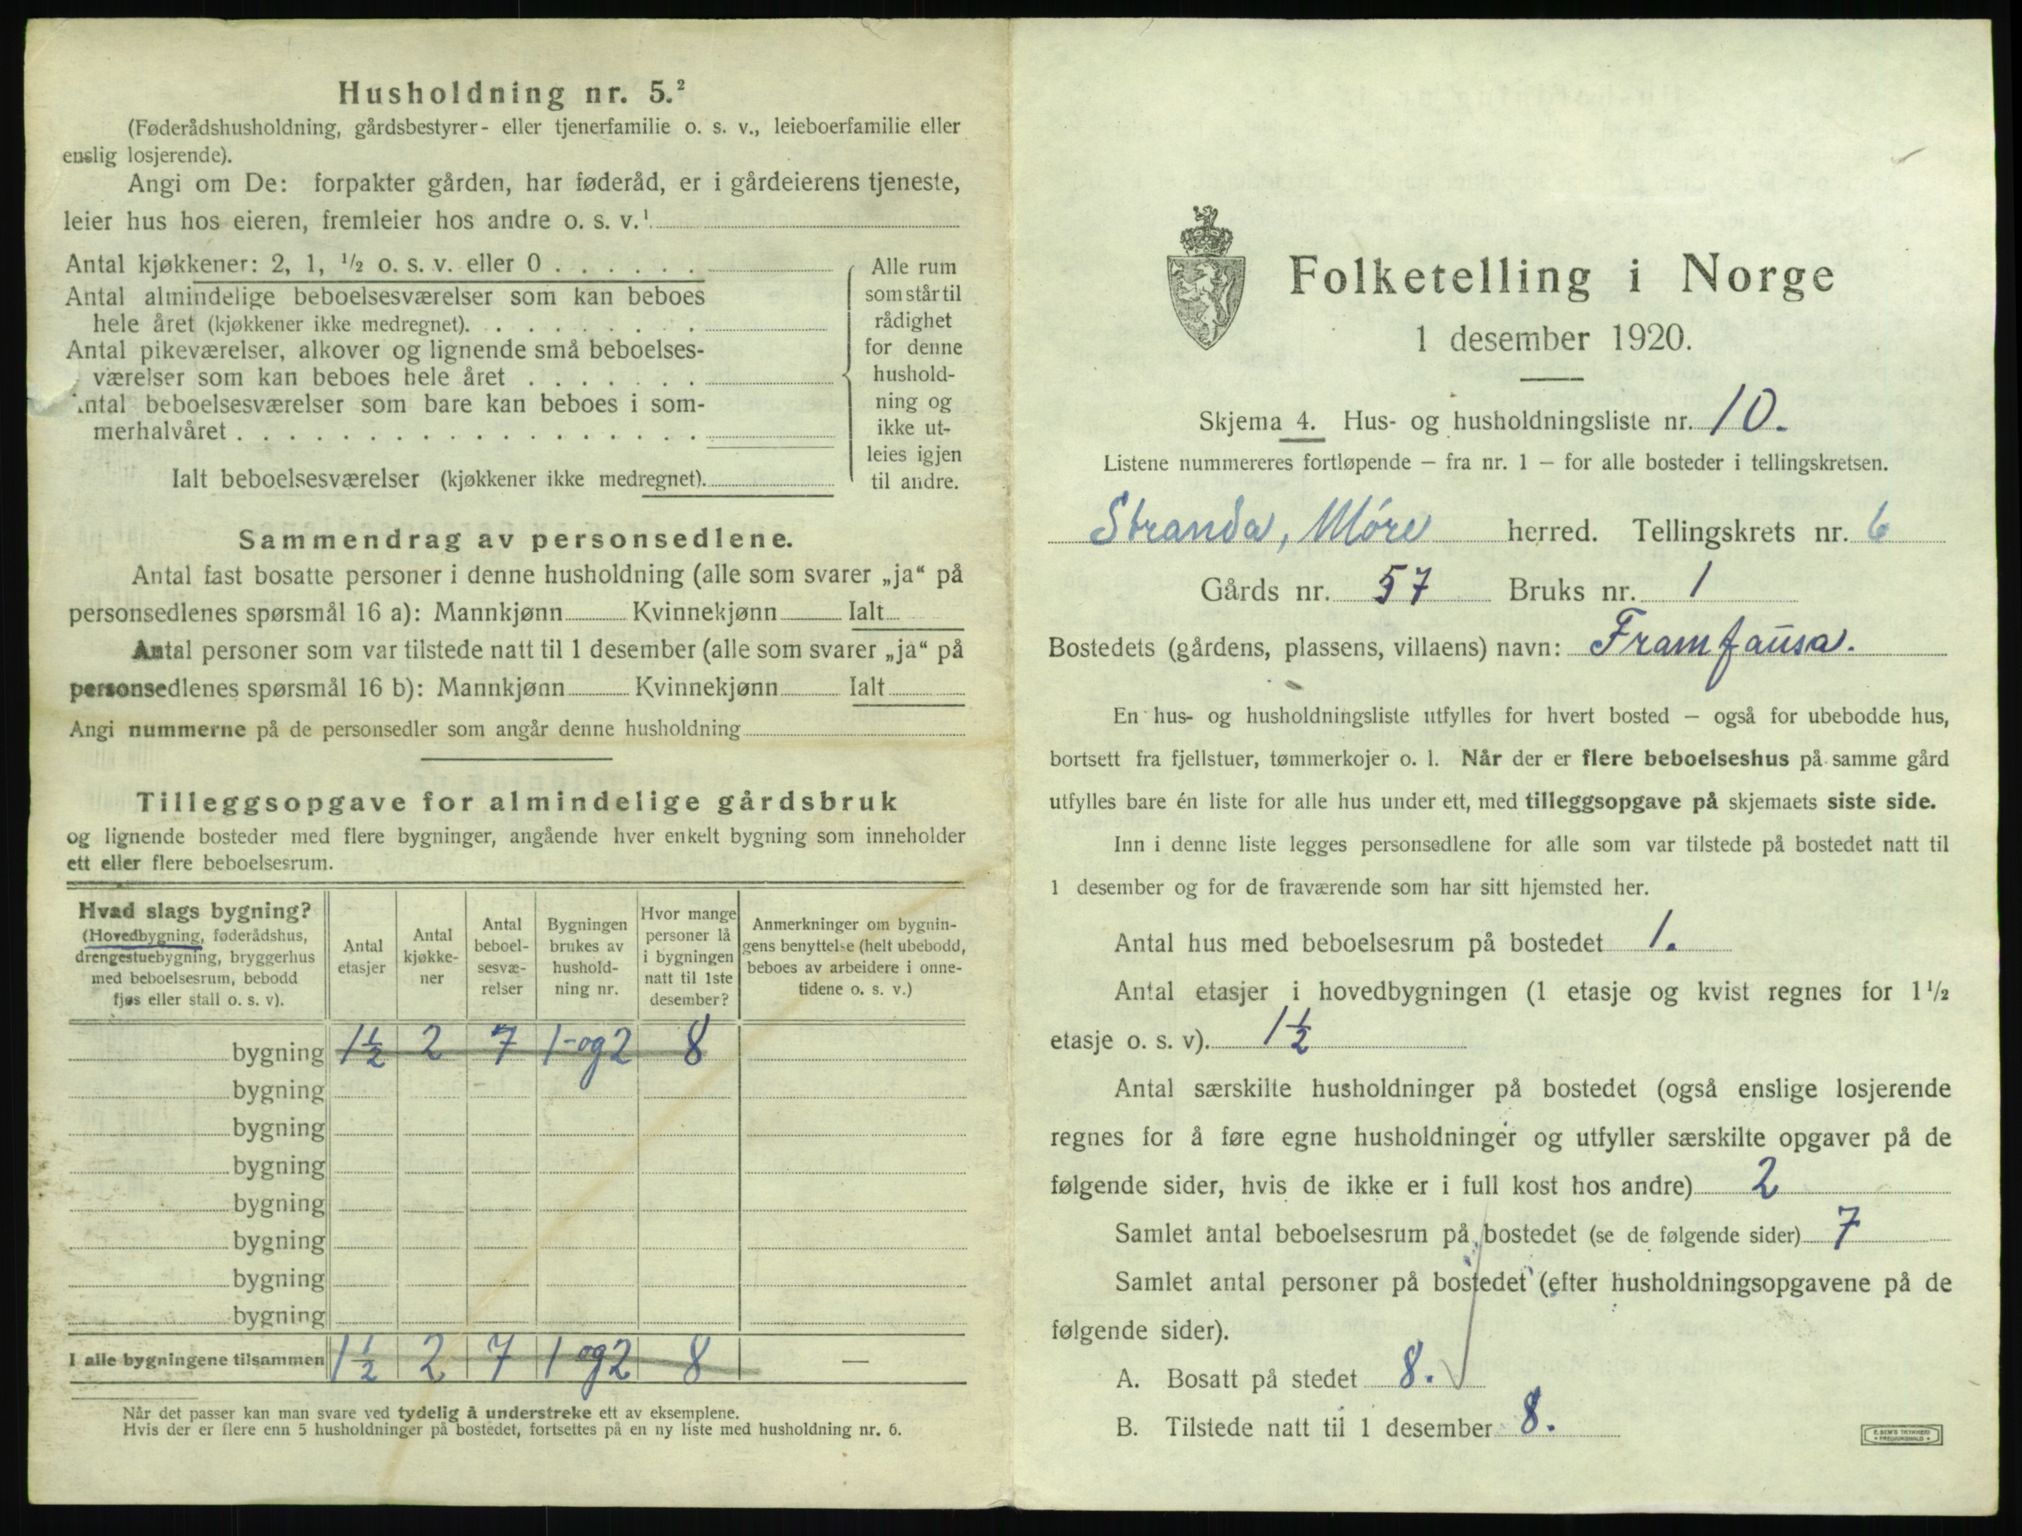 Husholdning nr. 5.²
(Føderådshusholdning, gårdsbestyrer- eller tjenerfamilie o. s. v., leieboerfamilie eller
enslig losjerende).
Angi om De: forpakter gården, har føderåd, er i gårdeierens tjeneste,
leier hus hos eieren, fremleier hos andre o. s. v.¹
Antal kjøkkener: 2, 1, ½ o. s. v. eller 0
Antal almindelige beboelsesværelser som kan beboes
hele året (kjøkkener ikke medregnet).
Antal pikeværelser, alkover og lignende små beboelses-
værelser som kan beboes hele året
Antal beboelsesværelser som bare kan beboes i som-
merhalvåret
Ialt beboelsesværelser (kjøkkener ikke medregnet).
Alle rum
som står til
rådighet
for denne
hushold-
ning og
ikke ut-
leies igjen
til andre.
Sammendrag av personsedlene.
Antal fast bosatte personer i denne husholdning (alle som svarer „ja“ på
personsedlenes spørsmål 16 a): Mannkjønn Kvinnekjønn Ialt
Antal personer som var tilstede natt til 1 desember (alle som svarer „ja“ på
personsedlenes spørsmål 16 b): Mannkjønn Kvinnekjønn Ialt
Angi nummerne på de personsedler som angår denne husholdning
Tilleggsopgave for almindelige gårdsbruk
og lignende bosteder med flere bygninger, angående hver enkelt bygning som inneholder
ett eller flere beboelsesrum.
Hvad slags bygning?
(Hovedbygning, føderådshus,
drengestuebygning, bryggerhus
med beboelsesrum, bebodd
fjøs eller stall o. s. v).
Antal
etasjer
Antal
kjøkke-
ner
Antal
beboel-
sesvæ-
relser
Bygningen
brukes av
hushold-
ning nr.
Hvor mange
personer lå
i bygningen
natt til 1ste
desember?
Anmerkninger om bygnin-
gens benyttelse (helt ubebodd,
beboes av arbeidere i onne-
tidene o. s. v.)
bygning 1½ 2 7 1-og2 8
bygning
bygning
bygning
bygning
bygning
bygning
bygning
I alle bygningene tilsammen 1½ 2 7 1 og2 8 —
Når det passer kan man svare ved tydelig å understreke ett av eksemplene.
Hvis der er flere enn 5 husholdninger på bostedet, fortsettes på en ny liste med husholdning nr. 6.
Folketelling i Norge
1 desember 1920.
Skjema 4. Hus- og husholdningsliste nr. 10.
Listene nummereres fortløpende – fra nr. 1 – for alle bosteder i tellingskretsen.
Stranda, Møre herred. Tellingskrets nr. 6
Gårds nr. 57 Bruks nr. 1
Bostedets (gårdens, plassens, villaens) navn: Framfausa.
En hus- og husholdningsliste utfylles for hvert bosted – også for ubebodde hus,
bortsett fra fjellstuer, tømmerkojer o. l. Når der er flere beboelseshus på samme gård
utfylles bare én liste for alle hus under ett, med tilleggsopgave på skjemaets siste side.
Inn i denne liste legges personsedlene for alle som var tilstede på bostedet natt til
1 desember og for de fraværende som har sitt hjemsted her.
Antal hus med beboelsesrum på bostedet 1.
Antal etasjer i hovedbygningen (1 etasje og kvist regnes for 1½
etasje o. s. v). 1½
Antal særskilte husholdninger på bostedet (også enslige losjerende
regnes for å føre egne husholdninger og utfyller særskilte opgaver på de
følgende sider, hvis de ikke er i full kost hos andre) 2
Samlet antal beboelsesrum på bostedet (se de følgende sider) 7
Samlet antal personer på bostedet (efter husholdningsopgavene på de
følgende sider).
A. Bosatt på stedet 8.
B. Tilstede natt til 1 desember 8.